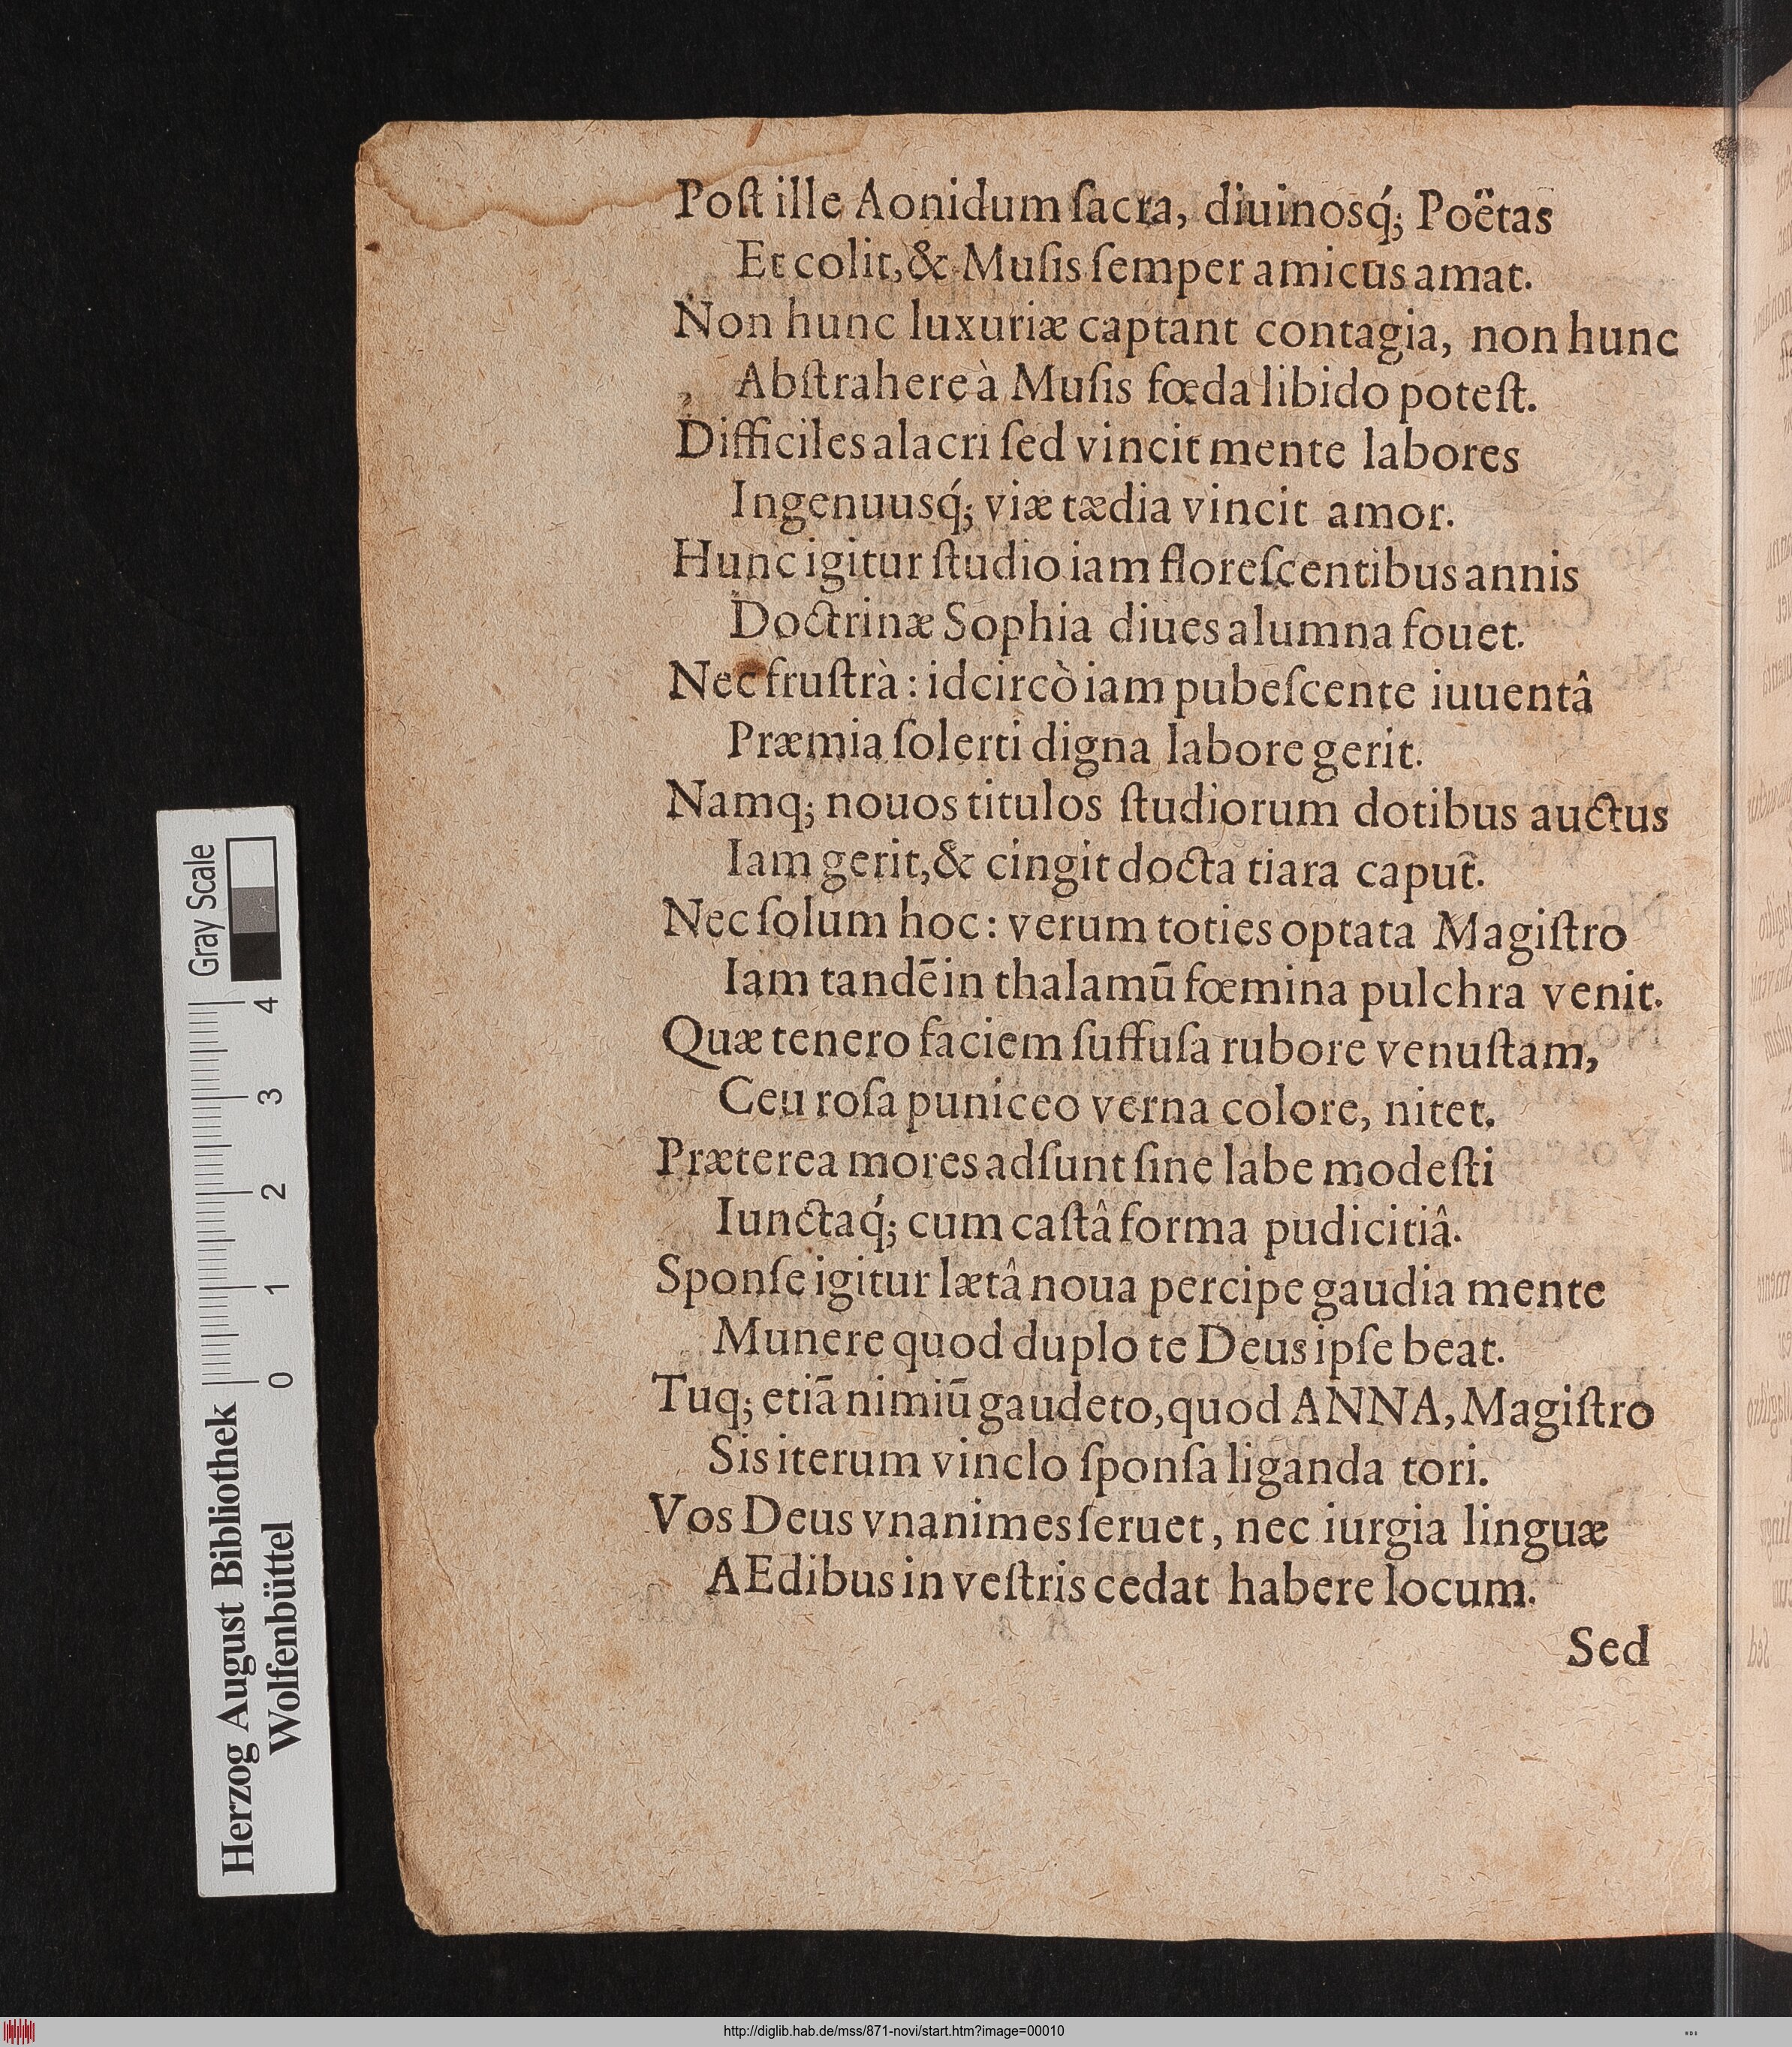 Poſt ille Aonidum ſacra, diuinosq́; Poëtas
Et colit, & Muſis ſemper amicus amat.
Non hunc luxuriæ captant contagia, non hunc
Abſtrahere à Muſis fœda libido poteſt.
Difficiles alacri ſed vincit mente labores
Ingenuusq́; viæ tædia vincit amor.
Hunc igitur ſtudio iam floreſcentibus annis
Doctrinæ Sophia diues alumna fouet.
Nec fruſtrà: idcircò iam pubeſcente iuuentâ
Præmia ſolerti digna labore gerit.
Namq; nouos titulos ſtudiorum dotibus auctus
Iam gerit, & cingit docta tiara caput.
Nec ſolum hoc: verum toties optata Magiſtro
Iam tandē in thalamū fœmina pulchra venit.
Quæ tenero faciem ſuffuſa rubore venuſtam,
Ceu roſa puniceo verna colore, nitet.
Præterea mores adſunt ſine labe modeſti
Iunctaq́; cum caſtâ forma pudicitiâ.
Sponſe igitur lætâ noua percipe gaudia mente
Munere quod duplo te Deus ipſe beat.
Tuq; etiā nimiū gaudeto, quod ANNA, Magiſtro
Sis iterum vinclo ſponſa liganda tori.
Vos Deus vnanimes ſeruet, nec iurgia linguæ
AEdibus in veſtris cedat habere locum.
Sed
Gray Scale
0 1 2 3 4
Herzog August Bibliothek
Wolfenbüttel
http://diglib.hab.de/mss/871-novi/start.htm?image=00010